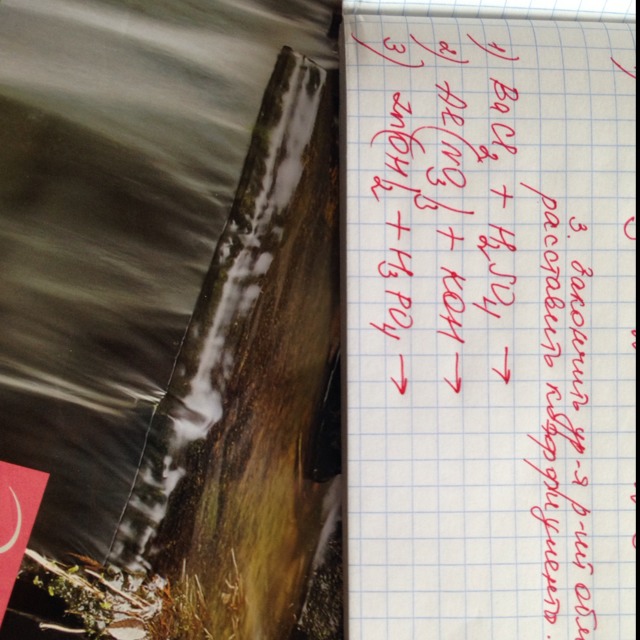 3. Закончить ур-я р-ций об
расставить коэффициенты.
1) BaCl2 + H2SO4 →
2) Al(NO3)3 + KOH →
3) Zn(OH)2 + H3PO4 →